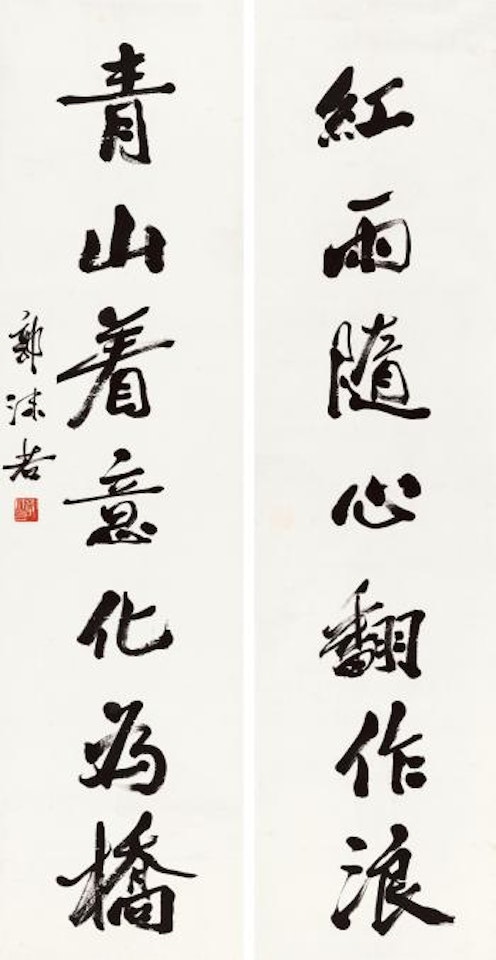 紅雨隨心翻作浪
青山着意化為橋
郭沫若